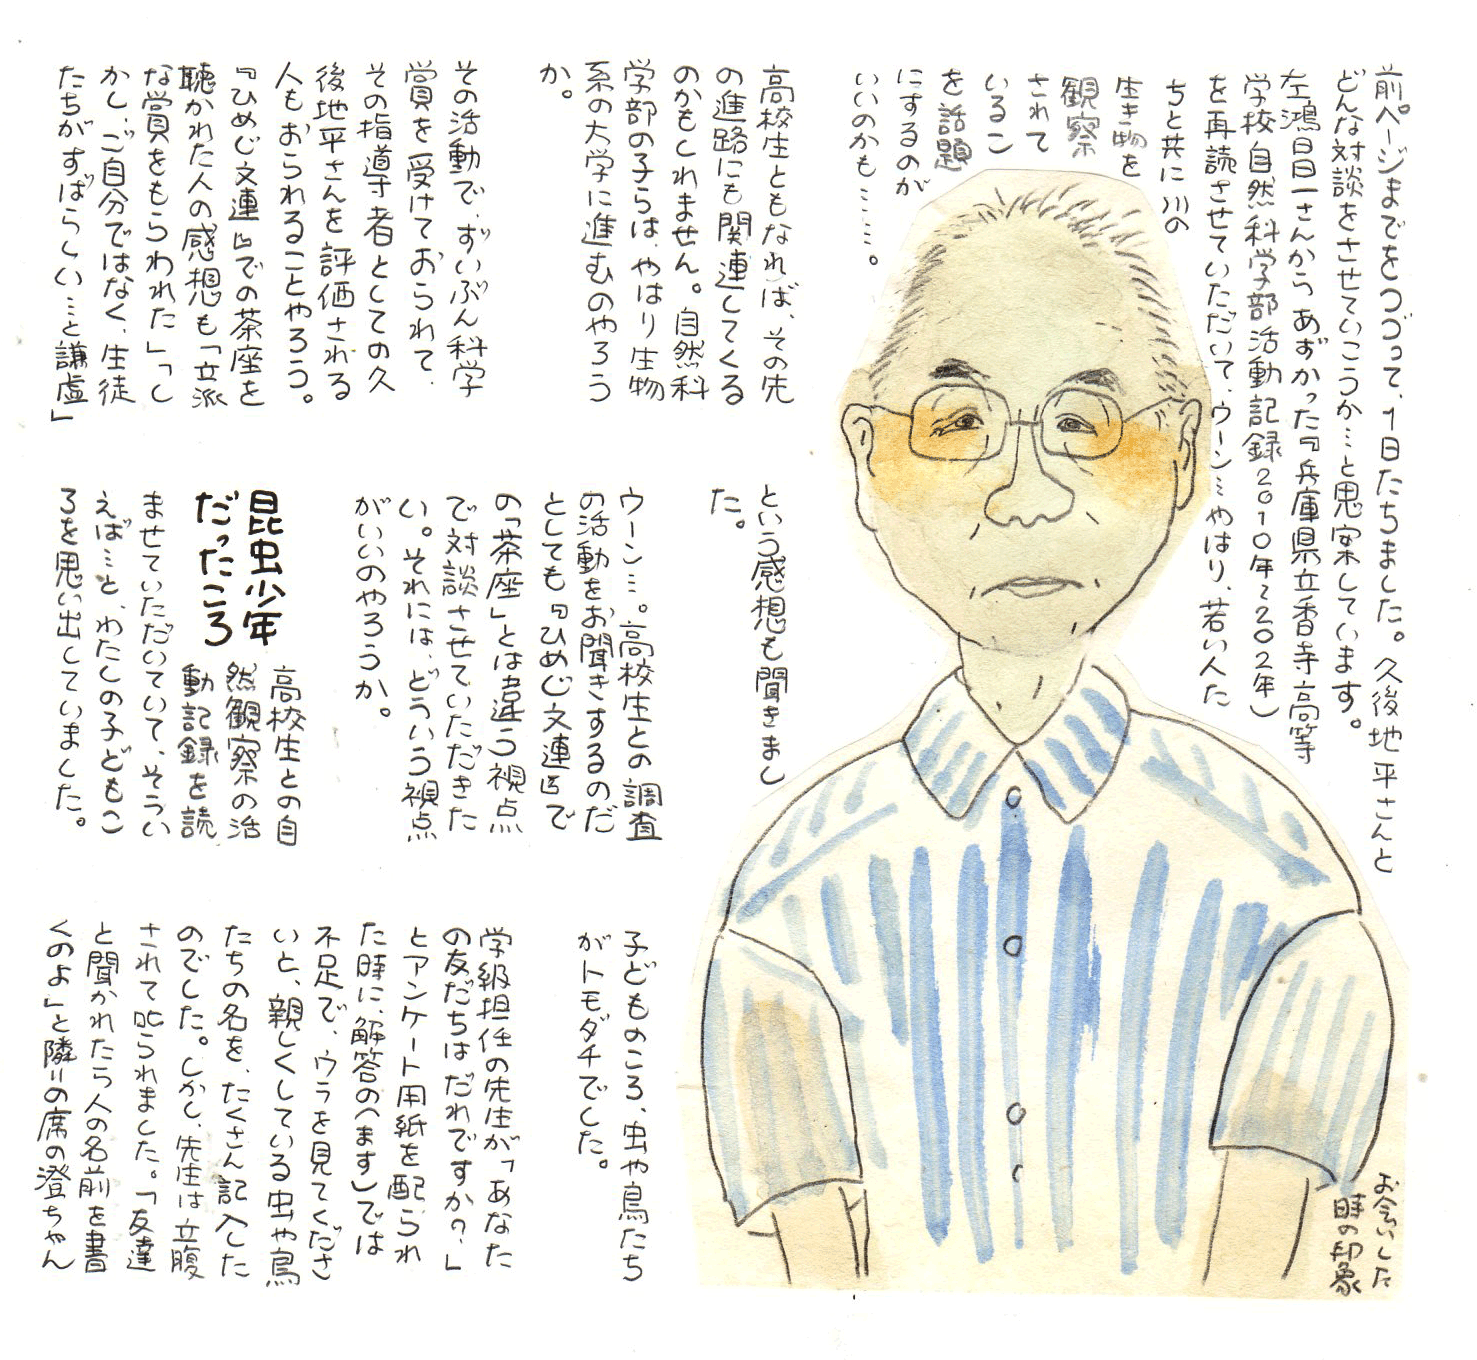 前ページまでをつづって、1日たちました。久後地平さんと
どんな対談をさせていこうか…と思案しています。
左鴻日一さんからあずかった『兵庫県立香寺高等
学校自然科学部活動記録2010年〜202年)
を再読させていただいて、ウーン…やはり、若い人た
ちと共に川の
生き物を
観察
されて
いるこ
を話題
にするのが
いいのかも……。
高校生ともなれば、その先
の進路にも関連してくる
のかもしれません。自然科
学部の子らは、やはり生物
系の大学に進むのやろう
か。
その活動で、ずいぶん科学
賞を受けておられて、
その指導者としての久
後地平さんを評価される
人もおられることやろう。
『ひめじ文連』での茶座を
聴かれた人の感想も「立派
な賞をもらわれた」「し
かし、ご自分ではなく、生徒
たちがすばらしい…と謙虚」
という感想も聞きまし
た。
ウーン…。高校生との調査
の活動をお聞きするのだ
としても『ひめじ文連』で
の「茶座」とは違う視点
で対談させていただきた
い。それには、どういう視点
がいいのやろうか。
昆虫少年
だったころ
高校生との自
然観察の活
動記録を読
ませていただいていて、そうい
えば…と、わたしの子どもこ
ろを思い出していました。
子どものころ、虫や鳥たち
がトモダチでした。
学級担任の先生が「あなた
の友だちはだれですか?」
とアンケート用紙を配られ
た時に、解答の(ます)では
不足で、ウラを見てくださ
いと、親しくしている虫や鳥
たちの名を、たくさん記入した
のでした。しかし、先生は立腹
されて叱られました。「友達
と聞かれたら人の名前を書
くのよ」と隣りの席の澄ちゃん
お会いした
時の印象